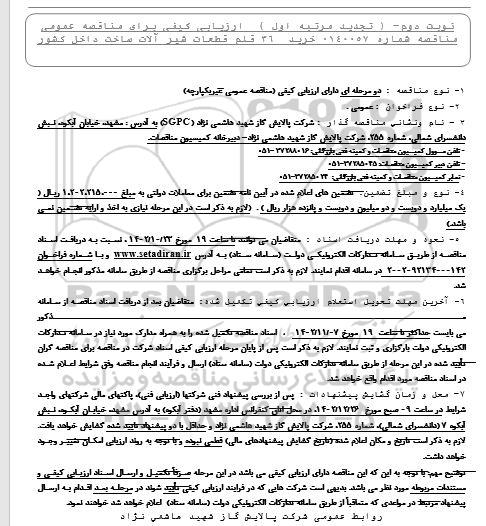 نوبت دوم- ( تجدید مرتبه اول ) ارزیابی کیفی برای مناقصه عمومی
مناقصه شماره ۰۱۴۰۰۵۷ خرید ۳۶ قلم قطعات شیر آلات ساخت داخل کشور
۱- نوع مناقصه : دو مرحله ای دارای ارزیابی کیفی (مناقصه عمومی غیریکپارچه)
۲- نوع فراخوان : عمومی .
۳ - نام ونشانی مناقصه گذار : شرکت پالایش گاز شهید هاشمی نژاد (SGPC) به آدرس : مشهد، خیابان آبکوه، نبش
دانشسرای شمالی، شماره ۲۵۵، شرکت پالایش گاز شهید هاشمی نژاد- دبیرخانه کمیسیون مناقصات.
- تلفن مسئول کمیسیون مناقصات و کمیته فنی بازرگانی: ۳۷۲۸۸۰۱۶-۰۵۱
- تلفن دبیر کمیسیون مناقصات: ۳۷۲۸۵۰۲۵-۰۵۱
- نمابر کمیسیون مناقصات و کمیته فنی بازرگانی:
۴- نوع و مبلغ تضمین: تضمین های اعلام شده در آیین نامه تضمین برای معاملات دولتی به مبلغ ریال (
یک میلیارد و دویست و دو میلیون و دویست و پانزده هزار ریال ) . (لازم به ذکر است در این مرحله نیازی به اخذ و ارایه تضمین نمی
باشد)
۵- نحوه و مهلت دریافت اسناد : متقاضیان می توانند تا ساعت ۱۹ مورخ نسبت به دریافت اسناد
مناقصه از طریق سامانه تدارکات الکترونیکی دولت (سامانه ستاد) به آدرس www.setadiran.ir و با شماره فراخوان
در سامانه اقدام نمایند. لازم به ذکر است تمامی مراحل برگزاری مناقصه از طریق سامانه مذکور انجام خواهد
شد.
۶- آخرین مهلت تحویل استعلام ارزیابی کیفی تکمیل شده: متقاضیان بعد از دریافت اسناد مناقصه از سامانه
مذکور
می بایست حداکثر تا ساعت ۱۹ مورخ اسناد مناقصه تکمیل شده را به همراه مدارک مورد نیاز در سامانه تدارکات
الکترونیکی دولت بارگزاری و ثبت نمایند. لازم به ذکر است پس از پایان مرحله ارزیابی کیفی اسناد شرکت در مناقصه برای مناقصه گران
تأیید شده در این مرحله از طریق سامانه تدارکات الکترونیکی دولت (سامانه ستاد) ارسال و فرآیند انجام مناقصه وفق شرایط اعلام شده
در اسناد مناقصه مورد اقدام واقع خواهد شد.
۷- محل و زمان گشایش پیشنهادات : پس از بررسی پیشنهاد فنی شرکتها (ارزیابی فنی)، پاکتهای مالی شرکتهای واجد
شرایط در ساعت ۹۰ صبح مورخ در محل اتاق کنفرانس اداره مشهد (دفتر آبکوه) به آدرس مشهد، خیابان آبکوه، نبش
آبکوه ۷ (دانشسرای شمالی)، شماره ۲۵۵، شرکت پالایش گاز شهید هاشمی نژاد و حداقل با دو پیشنهاد تایید شده گشایش خواهد یافت.
لازم به ذکر است تاریخ و مکان اعلام شده (تاریخ گشایش پیشنهادهای مالی) قطعی نبوده و با توجه به روند ارزیابی امکان تغییر وجود
خواهد داشت.
توضیح مهم: با توجه به این که این مناقصه دارای ارزیابی کیفی می باشد در این مرحله صرفاً تکمیل و ارسال اسناد ارزیابی کیفی و
مستندات مربوطه مورد نظر می باشد. بدیهی است شرکت هایی که در فرایند ارزیابی کیفی تأیید شوند در مرحله بعد اقدام به ارسال
پیشنهاد مرتبط در مواعدی که متعاقباً از طریق سامانه تدارکات الکترونیکی دولت (سامانه ستاد) اعلام خواهد شد خواهند نمود.
روابط عمومی شرکت پالایش گاز شهید هاشمی نژاد